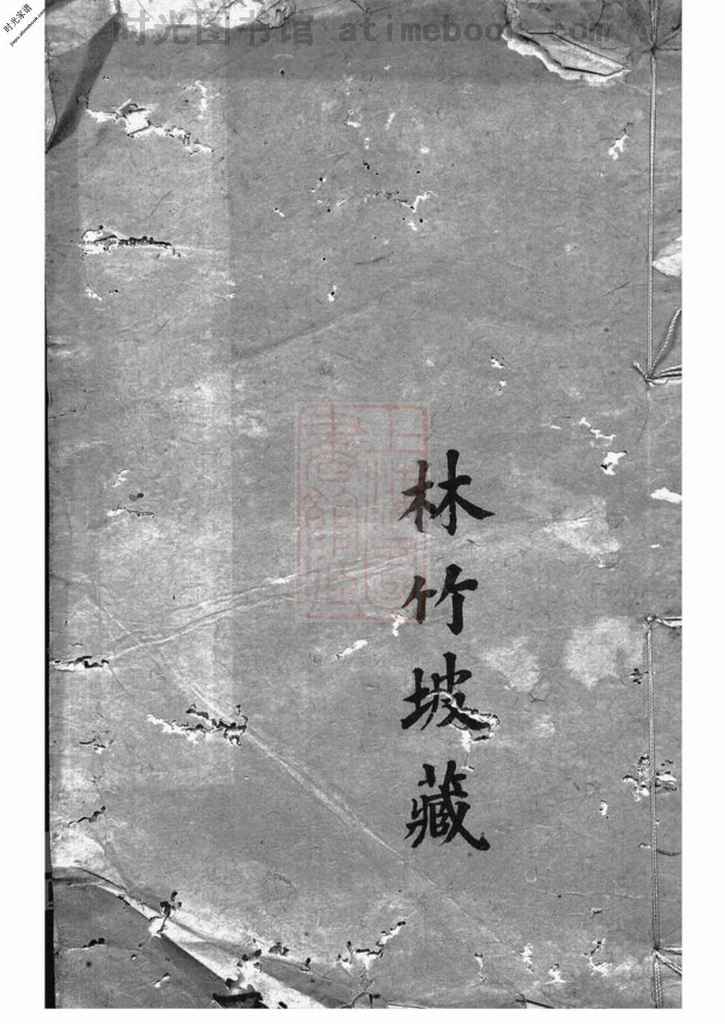 时光图书馆 atimebook.com
时光家谱
林竹坡藏